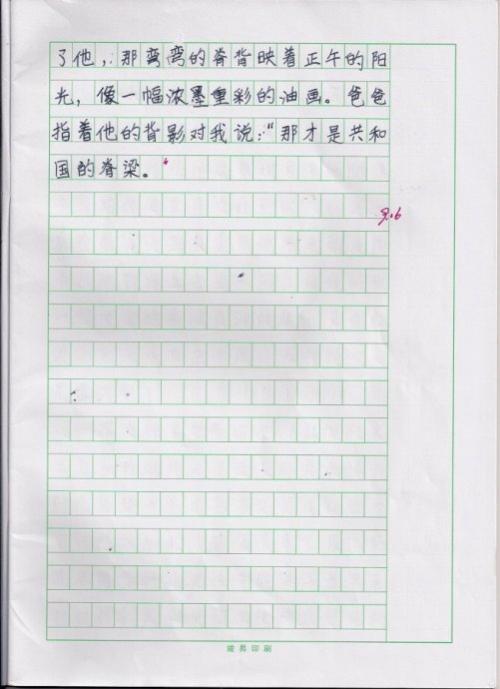 了他，那弯弯的脊背映着正午的阳
光，像一幅浓墨重彩的油画。爸爸
指着他的背影对我说：“那才是共和
国的脊梁。”
9.6
竣昇印刷